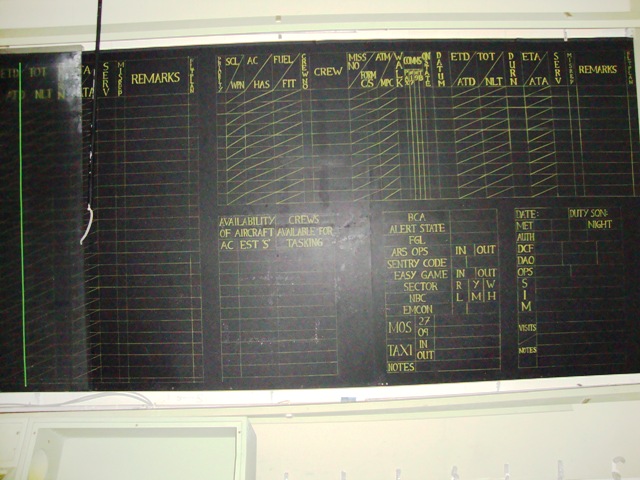 ETD TOT
ATD NLT
SERV
MISREP
REMARKS
SCL / AC / FUEL
WIN / HAS / FIT
CREW
MISS NO / ATM
FORM C/S / MPC
WALK
COMMS
DATUM
ETD / TOT
ATD / NLT
DURN
ETA
ATA
SERV
MISREP
REMARKS
AVAILABILITY: CREWS
OF AIRCRAFT AVAILABLE FOR
AC EST 'S' TASKING
BCA
ALERT STATE
FGL
ARS OPS IN OUT
SENTRY CODE
EASY GAME IN OUT
SECTOR R Y W
NBC L M H
EMCON
MOS 27
09
TAXI IN
OUT
NOTES
DATE: DUTY SGN:
MET NIGHT
AUTH
DCF
DAO
OPS
SIM
VISITS
NOTES